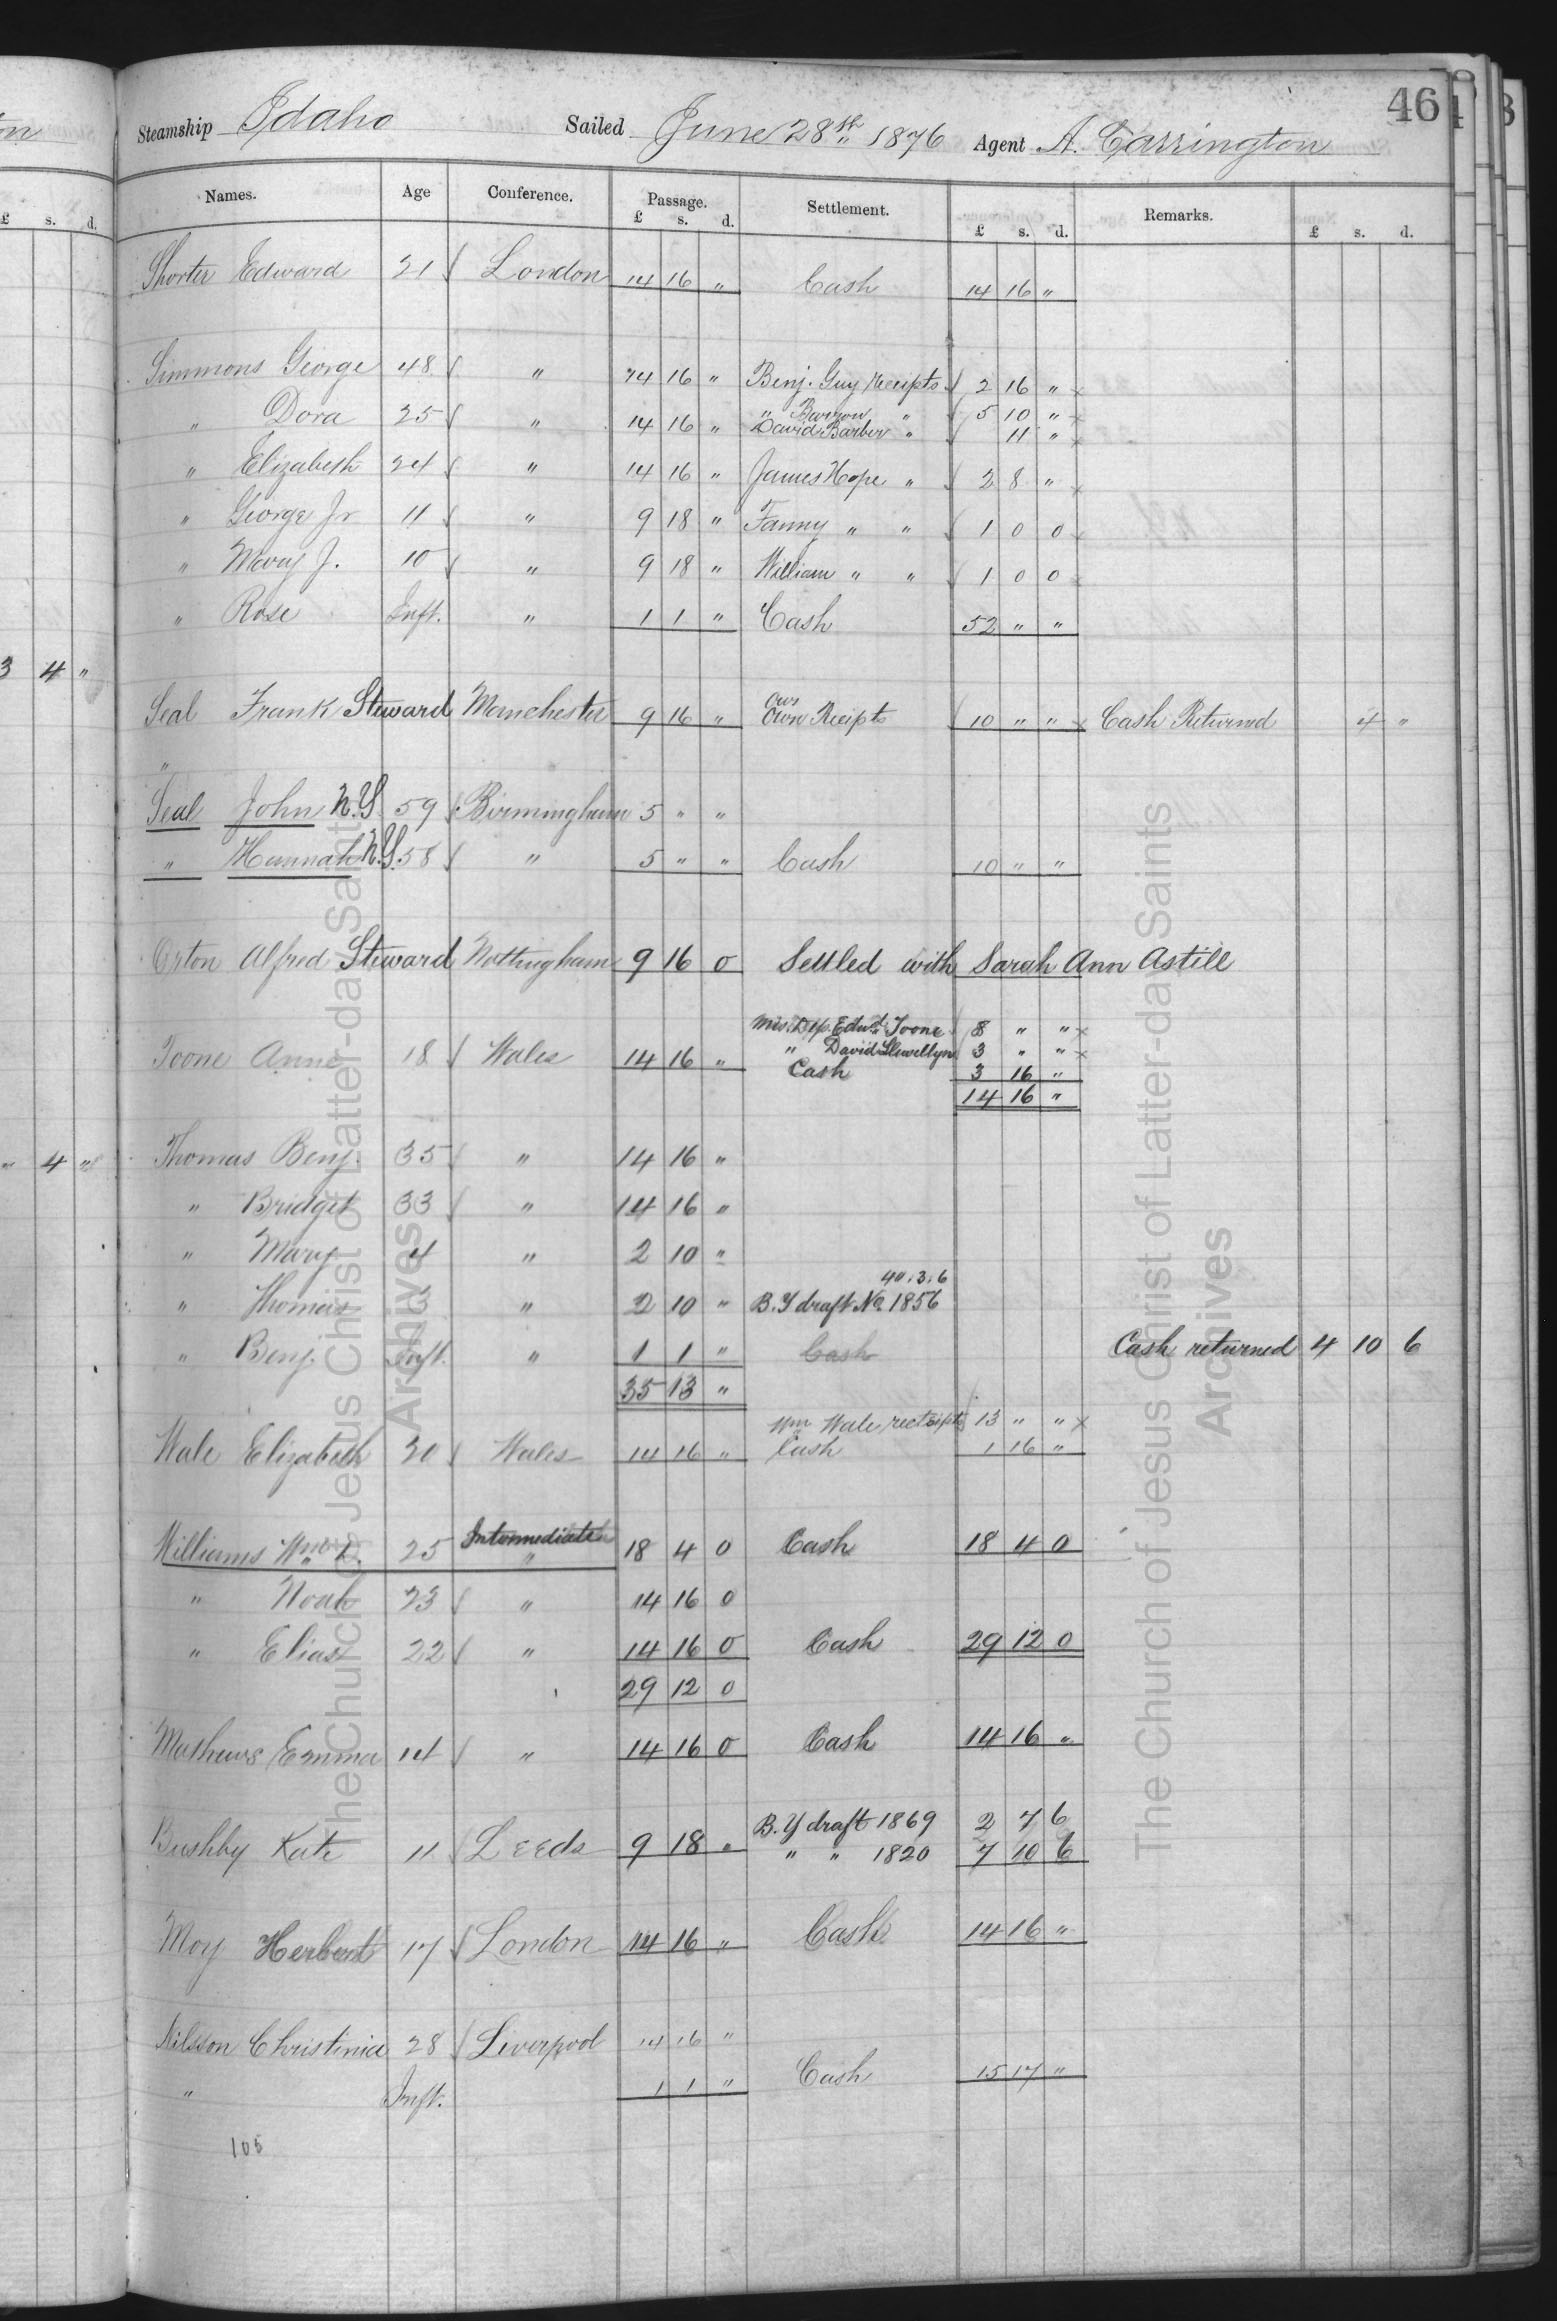 46
Steamship Idaho Sailed June 28th 1876 Agent A. Carrington
Names. Age Conference. Passage. Settlement. Remarks.
£ s. d. £ s. d. £ s. d.
Shorter Edward 21 London 14 16 " Cash 14 16 "
Simmons George 48 " 14 16 " Benj. Guy Receipts 2 16 " x
" Dora 25 " 14 16 " " Barrow " 5 10 " x
David Barber " 11 " x
" Elizabeth 24 " 14 16 " James Hope " 2 8 " x
" George Jr 11 " 9 18 " Fanny " " 1 0 0 x
" Mary J. 10 " 9 18 " William " " 1 0 0 x
" Rose Inft. " 1 1 " Cash 52 " "
3 4 "
Seal Frank Steward Manchester 9 16 " Own Receipts 10 " " x Cash Returned 4 "
"
Seal John N.Y. 59 Birmingham 5 " "
" Hannah N.Y. 58 " 5 " " Cash 10 " "
Orton Alfred Steward Nottingham 9 16 0 Settled with Sarah Ann Astill
Mis. Dep. Edwd. Toone 8 " " x
Toone Anne 18 Wales 14 16 " " David Llewellyn 3 " " x
Cash 3 16 "
14 16 "
" 4 "
Thomas Benj. 35 " 14 16 "
" Bridget 33 " 14 16 "
" Mary 4 " 2 10 "
40.3.6
" Thomas 3 " 2 10 " B.Y draft No. 1856
" Benj. Inft. " 1 1 " Cash Cash returned 4 10 6
35 13 "
Wm Wale receipts 13 " " x
Wale Elizabeth 20 Wales 14 16 " Cash 1 16 "
Williams Wm D. 25 Intermediate " 18 4 0 Cash 18 4 0
" Noah 23 " 14 16 0
" Elias 22 " 14 16 0 Cash 29 12 0
29 12 0
Mathews Emma 14 " 14 16 0 Cash 14 16 "
B.Y draft 1869 2 7 6
Bushby Kate 11 Leeds 9 18 " " " 1820 7 10 6
Moy Herbert 17 London 14 16 " Cash 14 16 "
Nilsson Christinia 28 Liverpool 14 16 "
" Inft. 1 1 " Cash 15 17 "
105
The Church of Jesus Christ of Latter-day Saints
Archives
The Church of Jesus Christ of Latter-day Saints
Archives